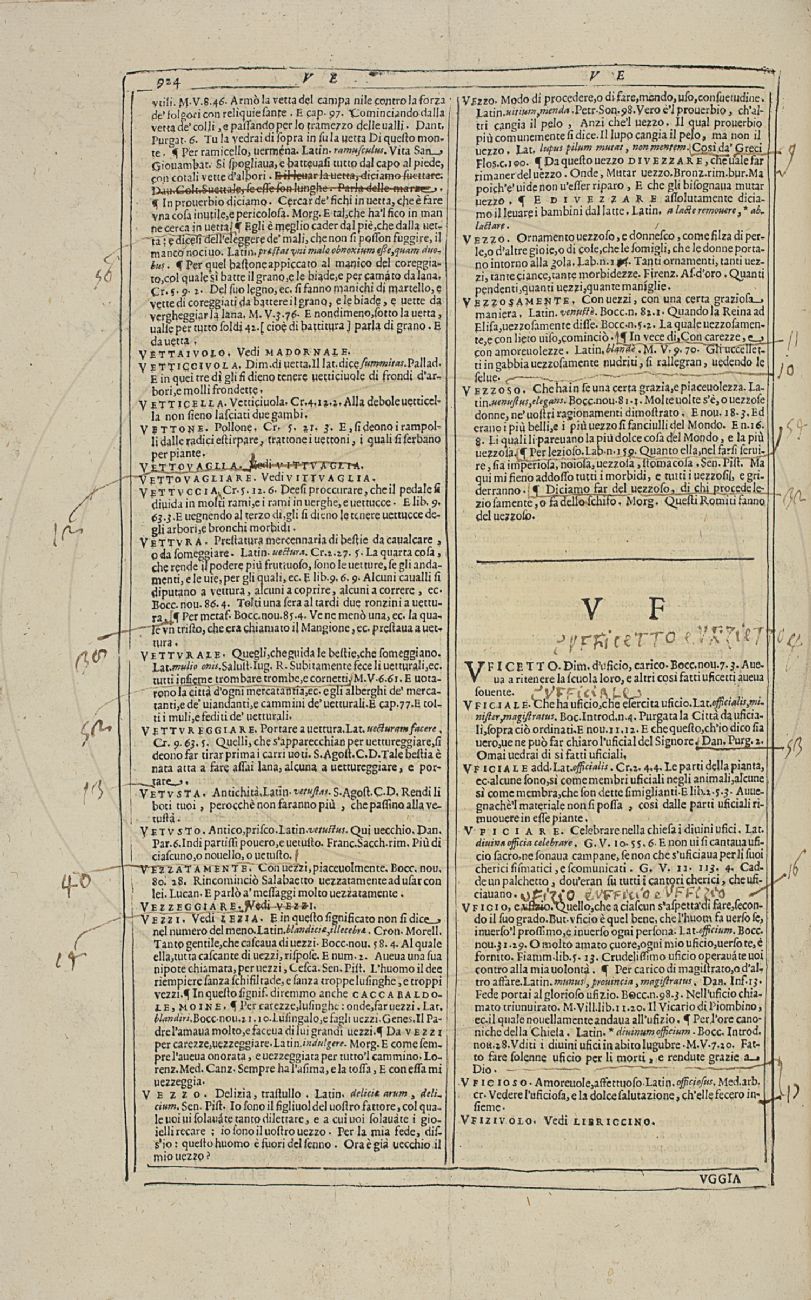 924
V E
V E
vtili. M.V.8.46. Armò la vetta del campanile contro la forza
de' folgori con reliquie sante. E cap. 97. Cominciando dalla
vetta de' colli, e passando per lo tramezzo delle ualli. Dant.
Purgat. 6. Tu la vedrai di sopra in su la uetta Di questo mon-
te. ¶ Per ramicello, uermena. Latin. ramusculus. Vita San
Giouambat. Si spogliaua, e batteuasi tutto dal capo al piede,
con cotali vette d'albori. E il leuar la uetta, diciamo suettare.
Dau. Colt. Suettale, se esse son lunghe. Parla delle marze.
¶ In prouerbio diciamo. Cercar de' fichi in uetta, che è fare
vna cosa inutile, e pericolosa. Morg. E tal, che ha'l fico in man
ne cerca in uetta. ¶ Egli è meglio cader dal piè, che dalla uet-
ta: e dicesi dell'eleggere de' mali, che non si posson fuggire, il
manco nociuo. Latin.
bus. ¶ Per quel bastone appiccato al manico del coreggia-
to, col quale si batte il grano, e le biade, e per camato da lana.
Cr. 5. 9. 2. Del suo legno, ec. si fanno manichi di martello, e
vette di coreggiati da battere il grano, e le biade, e uette da
vergheggiar la lana. M. V. 3. 76. E nondimeno, sotto la uetta,
ualse per tutto soldi 42. [cioè di battitura] parla di grano. E
da uetta.
VETTAIVOLO. Vedi MADORNALE.
VETTICCIVOLA. Dim. di uetta. Il lat. dice summitas. Pallad.
E in quei tre dì gli si dieno tenere uetticiuole di frondi d'ar-
bori, e molli frondette.
VETTICELLA. Vetticiuola. Cr. 4. 12. 2. Alla debole uetticel-
la non sieno lasciati due gambi.
VETTONE. Pollone. Cr. 5. 21. 3. E, si deono i rampol-
li dalle radici estirpare, trattone i uettoni, i quali si serbano
per piante.
VETTOVAGLIA. Vedi VITTVAGLIA.
VETTOVAGLIARE. Vedi VITTVAGLIA.
VETTVCCIA. Cr. 5. 12. 6. Deesi proccurare, che il pedale si
diuida in molti rami, e i rami in uerghe, e uettucce. E lib. 9.
63. 3. E uegnendo al terzo dì, gli si dieno le tenere uettucce de-
gli arbori, e bronchi morbidi.
VETTVRA. Prestatura mercennaria di bestie da caualcare,
o da someggiare. Latin. uectura. Cr. 2. 27. 5. La quarta cosa,
che rende il podere più fruttuoso, sono le uetture, se gli anda-
menti, e le uie, per gli quali, ec. E lib. 9. 6. 9. Alcuni caualli si
diputano a vettura, alcuni a coprire, alcuni a correre, ec.
Bocc. nou. 86. 4. Tolti una sera al tardi due ronzini a uettu-
ra. ¶ Per metaf. Bocc. nou. 85. 4. Ve ne menò una, ec. la qua-
le vn tristo, che era chiamato il Mangione, ec. prestaua a uet-
tura.
VETTVRALE. Quegli, che guida le bestie, che someggiano.
Lat. mulio onis. Salust. Iug. R. Subitamente fece li uetturali, ec.
tutti insieme trombare trombe, e cornetti. M. V. 6. 61. E uota-
rono la città d'ogni mercatantia, ec. e gli alberghi de' merca-
tanti, e de' uiandanti, e cammini de' uetturali. E cap. 77. E tol-
ti i muli, e fediti de' uetturali.
VETTVREGGIARE. Portare a uettura. Lat. uecturam facere.
Cr. 9. 63. 5. Quelli, che s'apparecchian per uettureggiare, si
deono far tirar prima i carri uoti. S. Agost. C. D. Tale bestia è
nata atta a fare assai lana, alcuna a uettureggiare, e por-
tare.
VETVSTA. Antichità. Latin. vetustas. S. Agost. C. D. Rendi li
boti tuoi, perocchè non faranno più, che passino alla ve-
tustà.
VETVSTO. Antico, prisco. Latin. vetustus. Qui uecchio. Dan.
Par. 6. Indi partissi pouero, e uetusto. Franc. Sacch. rim. Più di
ciascuno, o nouello, o uetusto.
VEZZATAMENTE. Con uezzi, piaceuolmente. Bocc. nou.
80. 28. Rincominciò Salabaetto uezzatamente ad usar con
lei. Lucan. E parlò a' messaggi molto uezzatamente.
VEZZEGGIARE. Vedi VEZZI.
VEZZI. Vedi LEZIA. E in questo significato non si dice
nel numero del meno. Latin. blandiciæ, illecebra. Cron. Morell.
Tanto gentile, che cascaua di uezzi. Bocc. nou. 58. 4. Al quale
ella, tutta cascante di uezzi, rispose. E num. 2. Aueua una sua
nipote chiamata, per uezzi, Cesca. Sen. Pist. L'huomo il dee
riempiere sanza schifiltade, e sanza troppe lusinghe, e troppi
vezzi. ¶ In questo signif. diremmo anche CACCABALDO-
LE, MOINE. ¶ Per carezze, lusinghe: onde, far uezzi. Lat.
blandiri. Bocc. nou. 21. 10. Lusingalo, e fagli uezzi. Genes. Il Pa-
dre l'amaua molto, e faceua di lui grandi uezzi. ¶ Da VEZZI
per carezze, uezzeggiare. Latin. indulgere. Morg. E come sem-
pre l'aueua onorata, e uezzeggiata per tutto'l cammino. Lo-
renz. Med. Canz. Sempre ha l'asima, e la tossa, E con essa mi
uezzeggia.
VEZZO. Delizia, trastullo. Latin. deliciæ arum, deli-
cium. Sen. Pist. Io sono il figliuol del uostro fattore, col qua-
le uoi ui solauate tanto dilettare, e a cui uoi solauate i gio-
ielli recare; io sono il uostro uezzo. Per la mia fede, dis-
s'io: questo huomo è fuori del senno. Ora è già uecchio il
mio uezzo?
VEZZO. Modo di procedere, o di fare, mendo, uso, consuetudine.
Latin. uitium, menda. Petr. Son. 98. Vero è'l prouerbio, ch'al-
tri cangia il pelo, Anzi che'l uezzo. Il qual prouerbio
più comunemente si dice. Il lupo cangia il pelo, ma non il
uezzo. Lat. lupus pilum mutat, non mentem. Così da' Greci
Flos. c. 190. ¶ Da questo uezzo DIVEZZARE, che uale far
rimaner del uezzo. Onde, Mutar uezzo. Bronz. rim. bur. Ma
poich'e' uide non u'esser riparo, E che gli bisognaua mutar
uezzo. ¶ E DIVEZZARE assolutamente dicia-
mo il leuare i bambini dal latte. Latin. a lacte remouere, * ab-
lactare.
VEZZO. Ornamento uezzoso, e donnesco, come filza di per-
le, o d'altre gioie, o di cose, che le somigli, che le donne porta-
no intorno alla gola. Lab. n. Tanti ornamenti, tanti uez-
zi, tante ciance, tante morbidezze. Firenz. As. d'oro. Quanti
pendenti, quanti uezzi, quante maniglie.
VEZZOSAMENTE. Con uezzi, con una certa graziosa
maniera. Latin. venustè. Bocc. n. 82. 1. Quando la Reina ad
Elisa, uezzosamente disse. Bocc. n. 5. 2. La quale uezzosamen-
te, e con lieto uiso, cominciò. ¶ In vece di, Con carezze, e
con amoreuolezze. Latin. blandè. M. V. 9. 70. Gli uccellet-
ti in gabbia uezzosamente nudriti, si rallegran, uedendo le
selue.
VEZZOSO. Che ha in se una certa grazia, e piaceuolezza. La-
tin. uenustus, elegans. Bocc. nou. 81. 1. Molte uolte s'è, o uezzose
donne, ne' uostri ragionamenti dimostrato. E nou. 18. 3. Ed
erano i più belli, e i più uezzosi fanciulli del Mondo. E n. 16.
8. Li quali li pareuano la più dolce cosa del Mondo, e la più
uezzosa. ¶ Per lezioso. Lab. n. 159. Quanto ella, nel farsi serui-
re, sia imperiosa, noiosa, uezzosa, stomacosa. Sen. Pist. Ma
qui mi fieno addosso tutti i morbidi, e tutti i uezzosi, e gri-
derranno. ¶ Diciamo far del uezzoso, di chi procede le-
ziosamente, o fa dello schifo. Morg. Questi Romiti fanno
del uezzoso.
V F
VFFICETTO e VFZIETTO
VFICETTO. Dim. d'uficio, carico. Bocc. nou. 7. 3. Aue-
ua a ritenere la scuola loro, e altri così fatti uficetti aueua
souente.
VFFICIALE
VFICIALE. Che ha uficio, che esercita uficio. Lat. officialis, mi-
nister, magistratus. Boc. Introd. n. 4. Purgata la Città da uficia-
li, sopra ciò ordinati. E nou. 11. 12. E che questo, ch'io dico sia
uero, ue ne può far chiaro l'uficial del Signore. Dan. Purg. 2.
Omai uedrai di sì fatti uficiali.
VFICIALE add. Lat. officialis. Cr. 2. 4. 4. Le parti della pianta,
ec. alcune sono, sì come membri uficiali negli animali, alcune
sì come membra, che son dette simiglianti. E lib. 2. 5. 3. Auue-
gnachè'l materiale non si possa, così dalle parti uficiali ri-
muouere in esse piante.
VFICIARE. Celebrare nella chiesa i diuini ufici. Lat.
diuina officia celebrare. G. V. 10. 55. 6. E non ui si cantaua ufi-
cio sacro, ne sonaua campane, se non che s'uficiaua per li suoi
cherici sismatici, e scomunicati. G. V. 11. 113. 4. Cad-
de un palchetto, dou'eran su tutti i cantori cherici, che ufi-
ciauano.
VFICIO, e ufizio. Quello, che a ciascun s'aspetta di fare, secon-
do il suo grado. But. vficio è quel bene, che l'huom fa uerso se,
inuerso'l prossimo, e inuerso ogni persona. Lat. officium. Bocc.
nou. 31. 29. O molto amato cuore, ogni mio uficio, uerso te, è
fornito. Fiamm. lib. 5. 13. Crudelissimo uficio operauate uoi
contro alla mia uolontà. ¶ Per carico di magistrato, o d'al-
tro affare. Latin. munus, prouincia, magistratus. Dan. Inf. 13.
Fede portai al glorioso ufizio. Bocc. n. 98. 3. Nell'uficio chia-
mato triunuirato. M. Vill. lib. 11. 20. Il Vicario di Piombino,
ec. il quale nouellamente andaua all'ufizio. ¶ Per l'ore cano-
niche della Chiesa. Latin. * diuinum officium. Bocc. Introd.
nou. 28. Vditi i diuini ufici in abito lugubre. M. V. 7. 20. Fat-
to fare solenne uficio per li morti, e rendute grazie a
Dio.
VFICIOSO. Amoreuole, affettuoso. Latin. officiosus. Med. arb.
cr. Vedere l'uficiosa, e la dolce salutazione, ch'elle fecero in-
sieme.
VFIZIVOLO. Vedi LIBRICCINO.
VGGIA